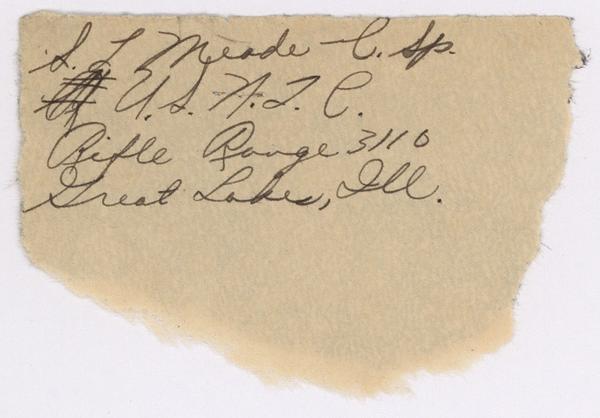 S. L Meade C. Sp.
U. S. N. T. C.
Rifle Range 3110
Great Lakes, Ill.